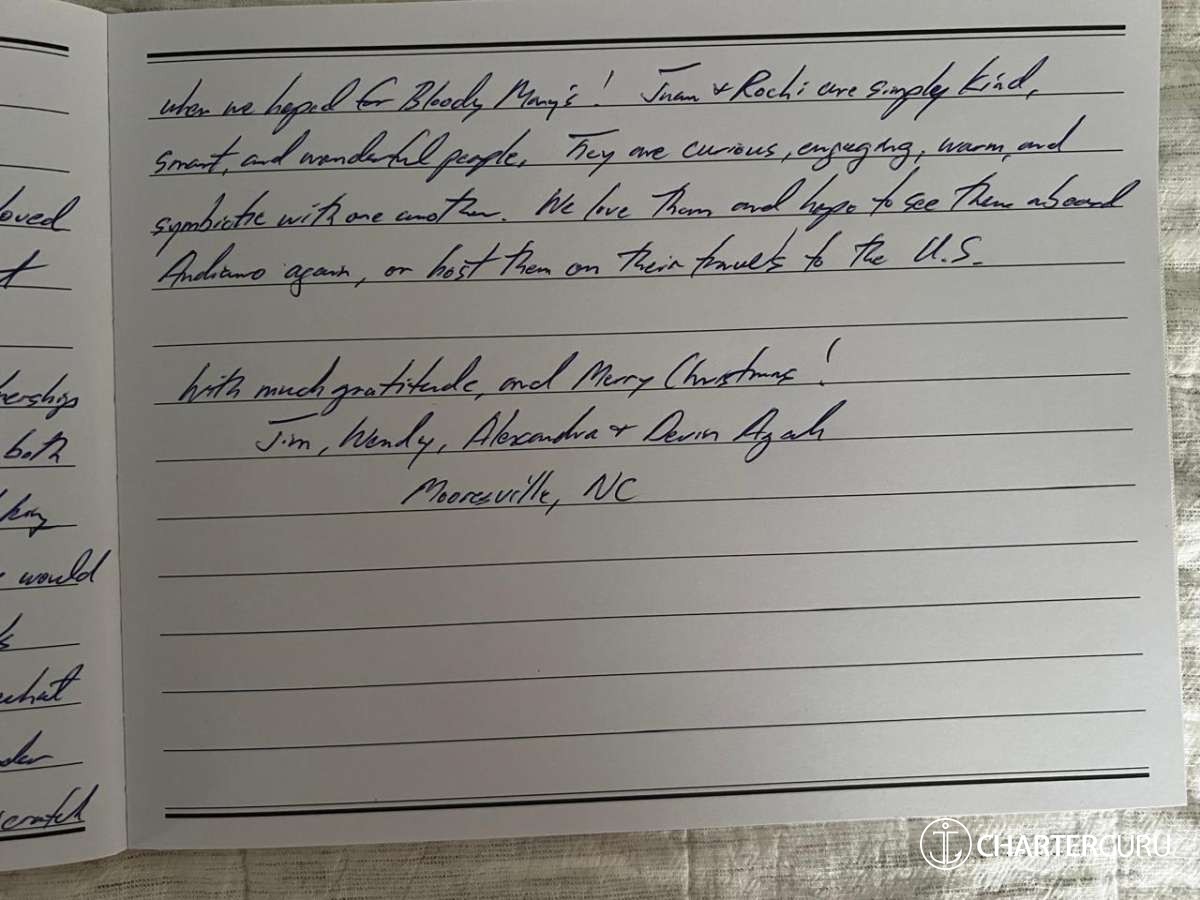 loved
t
nerships
both
would
what
scratch
when we hoped for Bloody Mary's! Juan & Rochi are simply kind,
smart, and wonderful people. They are curious, engaging, warm, and
symbiotic with one another. We love them and hope to see them aboard
Andiamo again, or host them on their travels to the U.S.
With much gratitude, and Merry Christmas!
Jim, Wendy, Alexandra & Devin
Mooresville, NC
CHARTERGURU